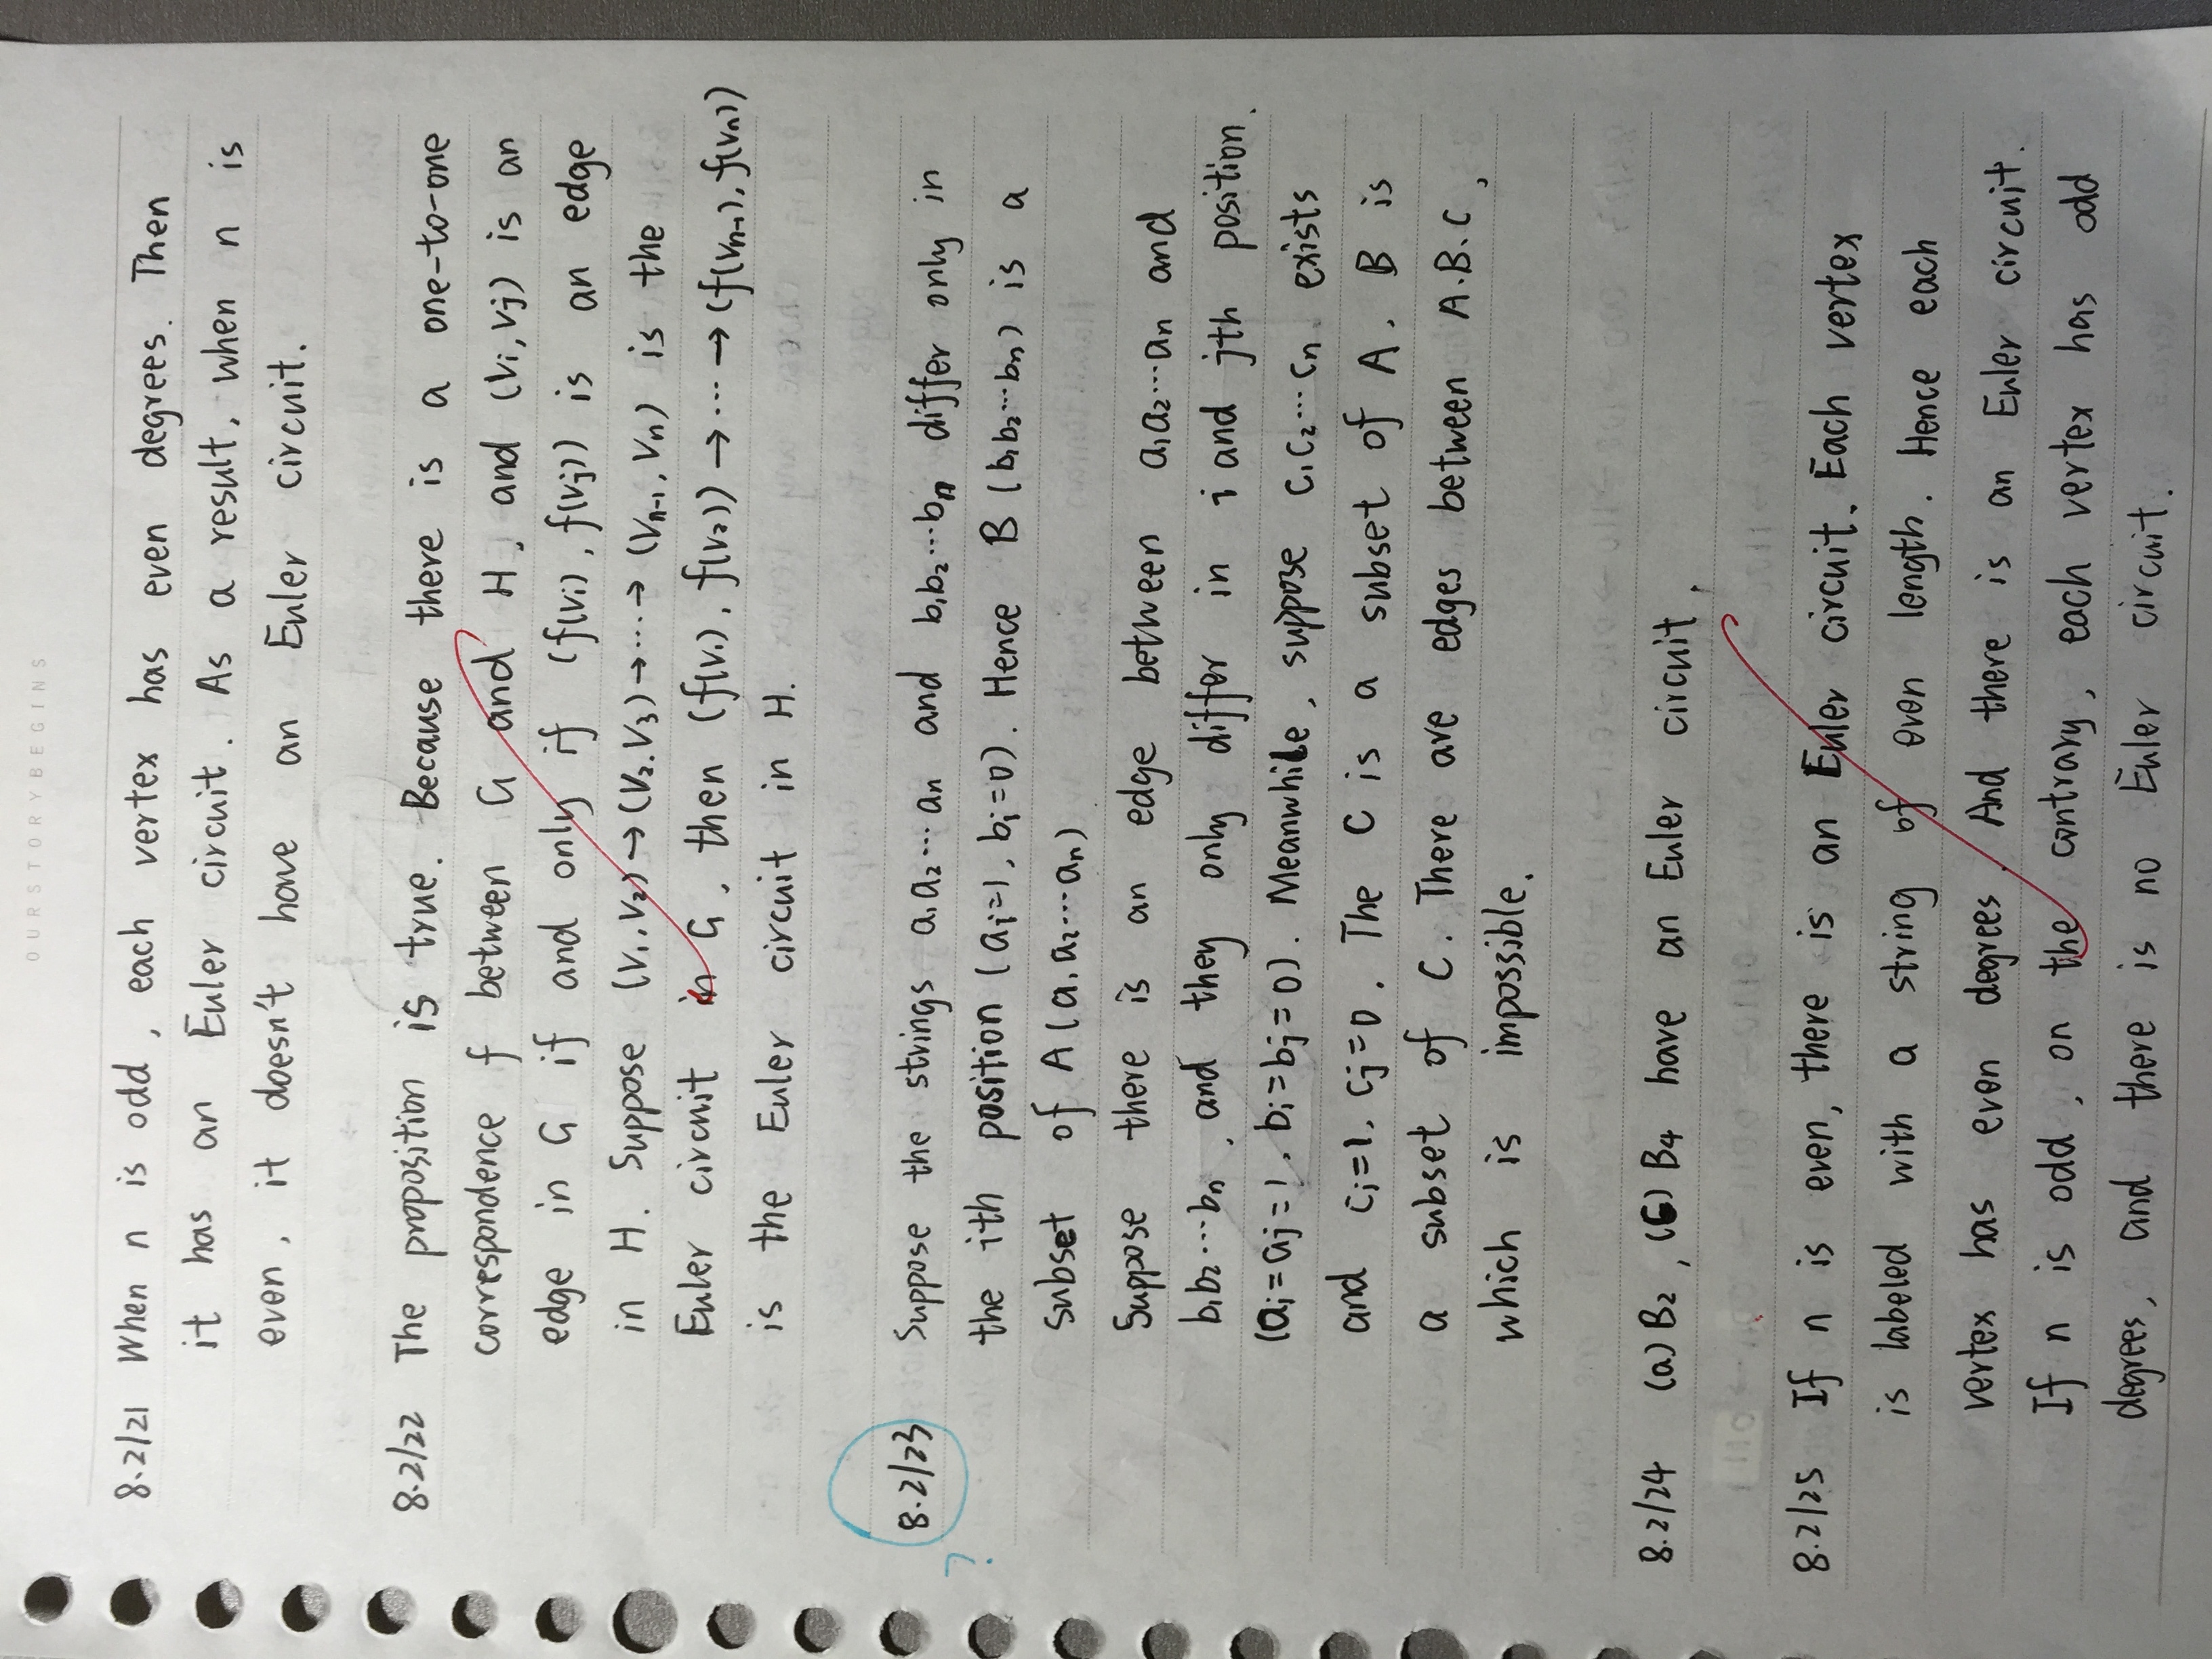 OURSTORYBEGINS
8.2/21 When n is odd, each vertex has even degrees. Then
it has an Euler circuit. As a result, when n is
even, it doesn't have an Euler circuit.
8.2/22 The proposition is true. Because there is a one-to-one
correspondence f between G and H, and (Vi, Vj) is an
edge in G if and only if (f(Vi), f(Vj)) is an edge
in H. Suppose (V₁, V₂) → (V₂, V₃) → ··· → (Vn-1, Vn) is the
Euler circuit in G, then (f(V₁), f(V₂)) → ··· → (f(Vn-1), f(Vn))
is the Euler circuit in H.
8.2/23 Suppose the strings a₁a₂···an and b₁b₂···bn differ only in
? the ith position (ai=1, bi=0). Hence B (b₁b₂···bn) is a
subset of A (a₁a₂···an)
Suppose there is an edge between a₁a₂···an and
b₁b₂···bn, and they only differ in i and jth position.
(ai=aj=1, bi=bj=0). Meanwhile, suppose c₁c₂···cn exists
and ci=1, cj=0. The C is a subset of A. B is
a subset of C. There are edges between A.B.C,
which is impossible.
8.2/24 (a) B₂, (c) B₄ have an Euler circuit.
8.2/25 If n is even, there is an Euler circuit. Each vertex
is labeled with a string of even length. Hence each
vertex has even degrees. And there is an Euler circuit.
If n is odd, on the contrary, each vertex has odd
degrees, and there is no Euler circuit.